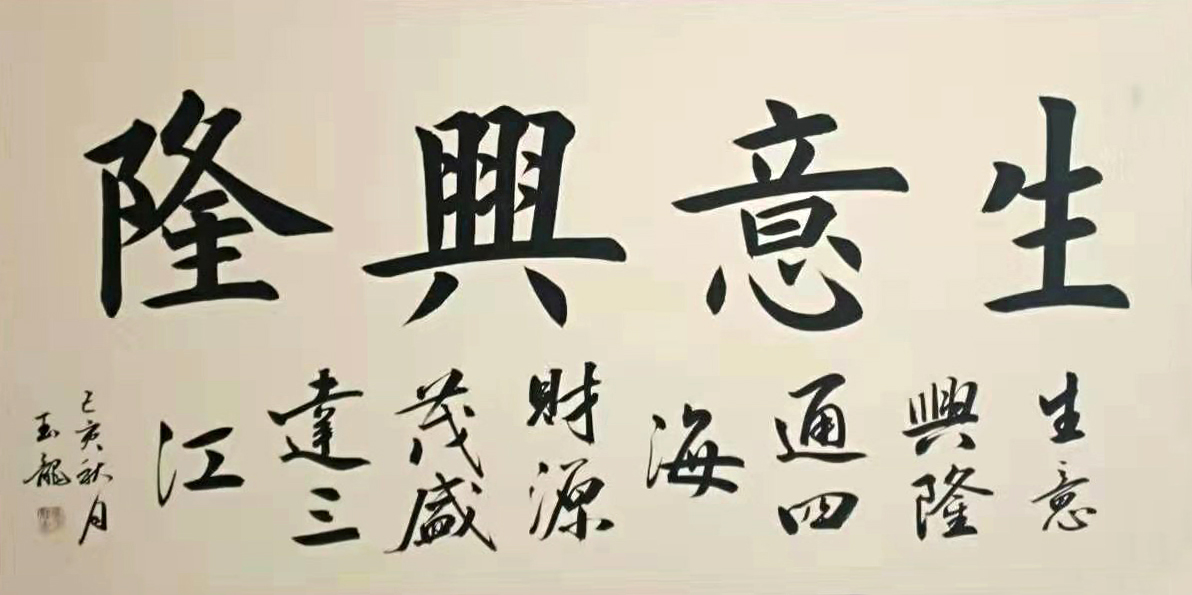 生意興隆
生意
興隆
通四
海
財源
茂盛
達三
江
己亥秋月
玉龍